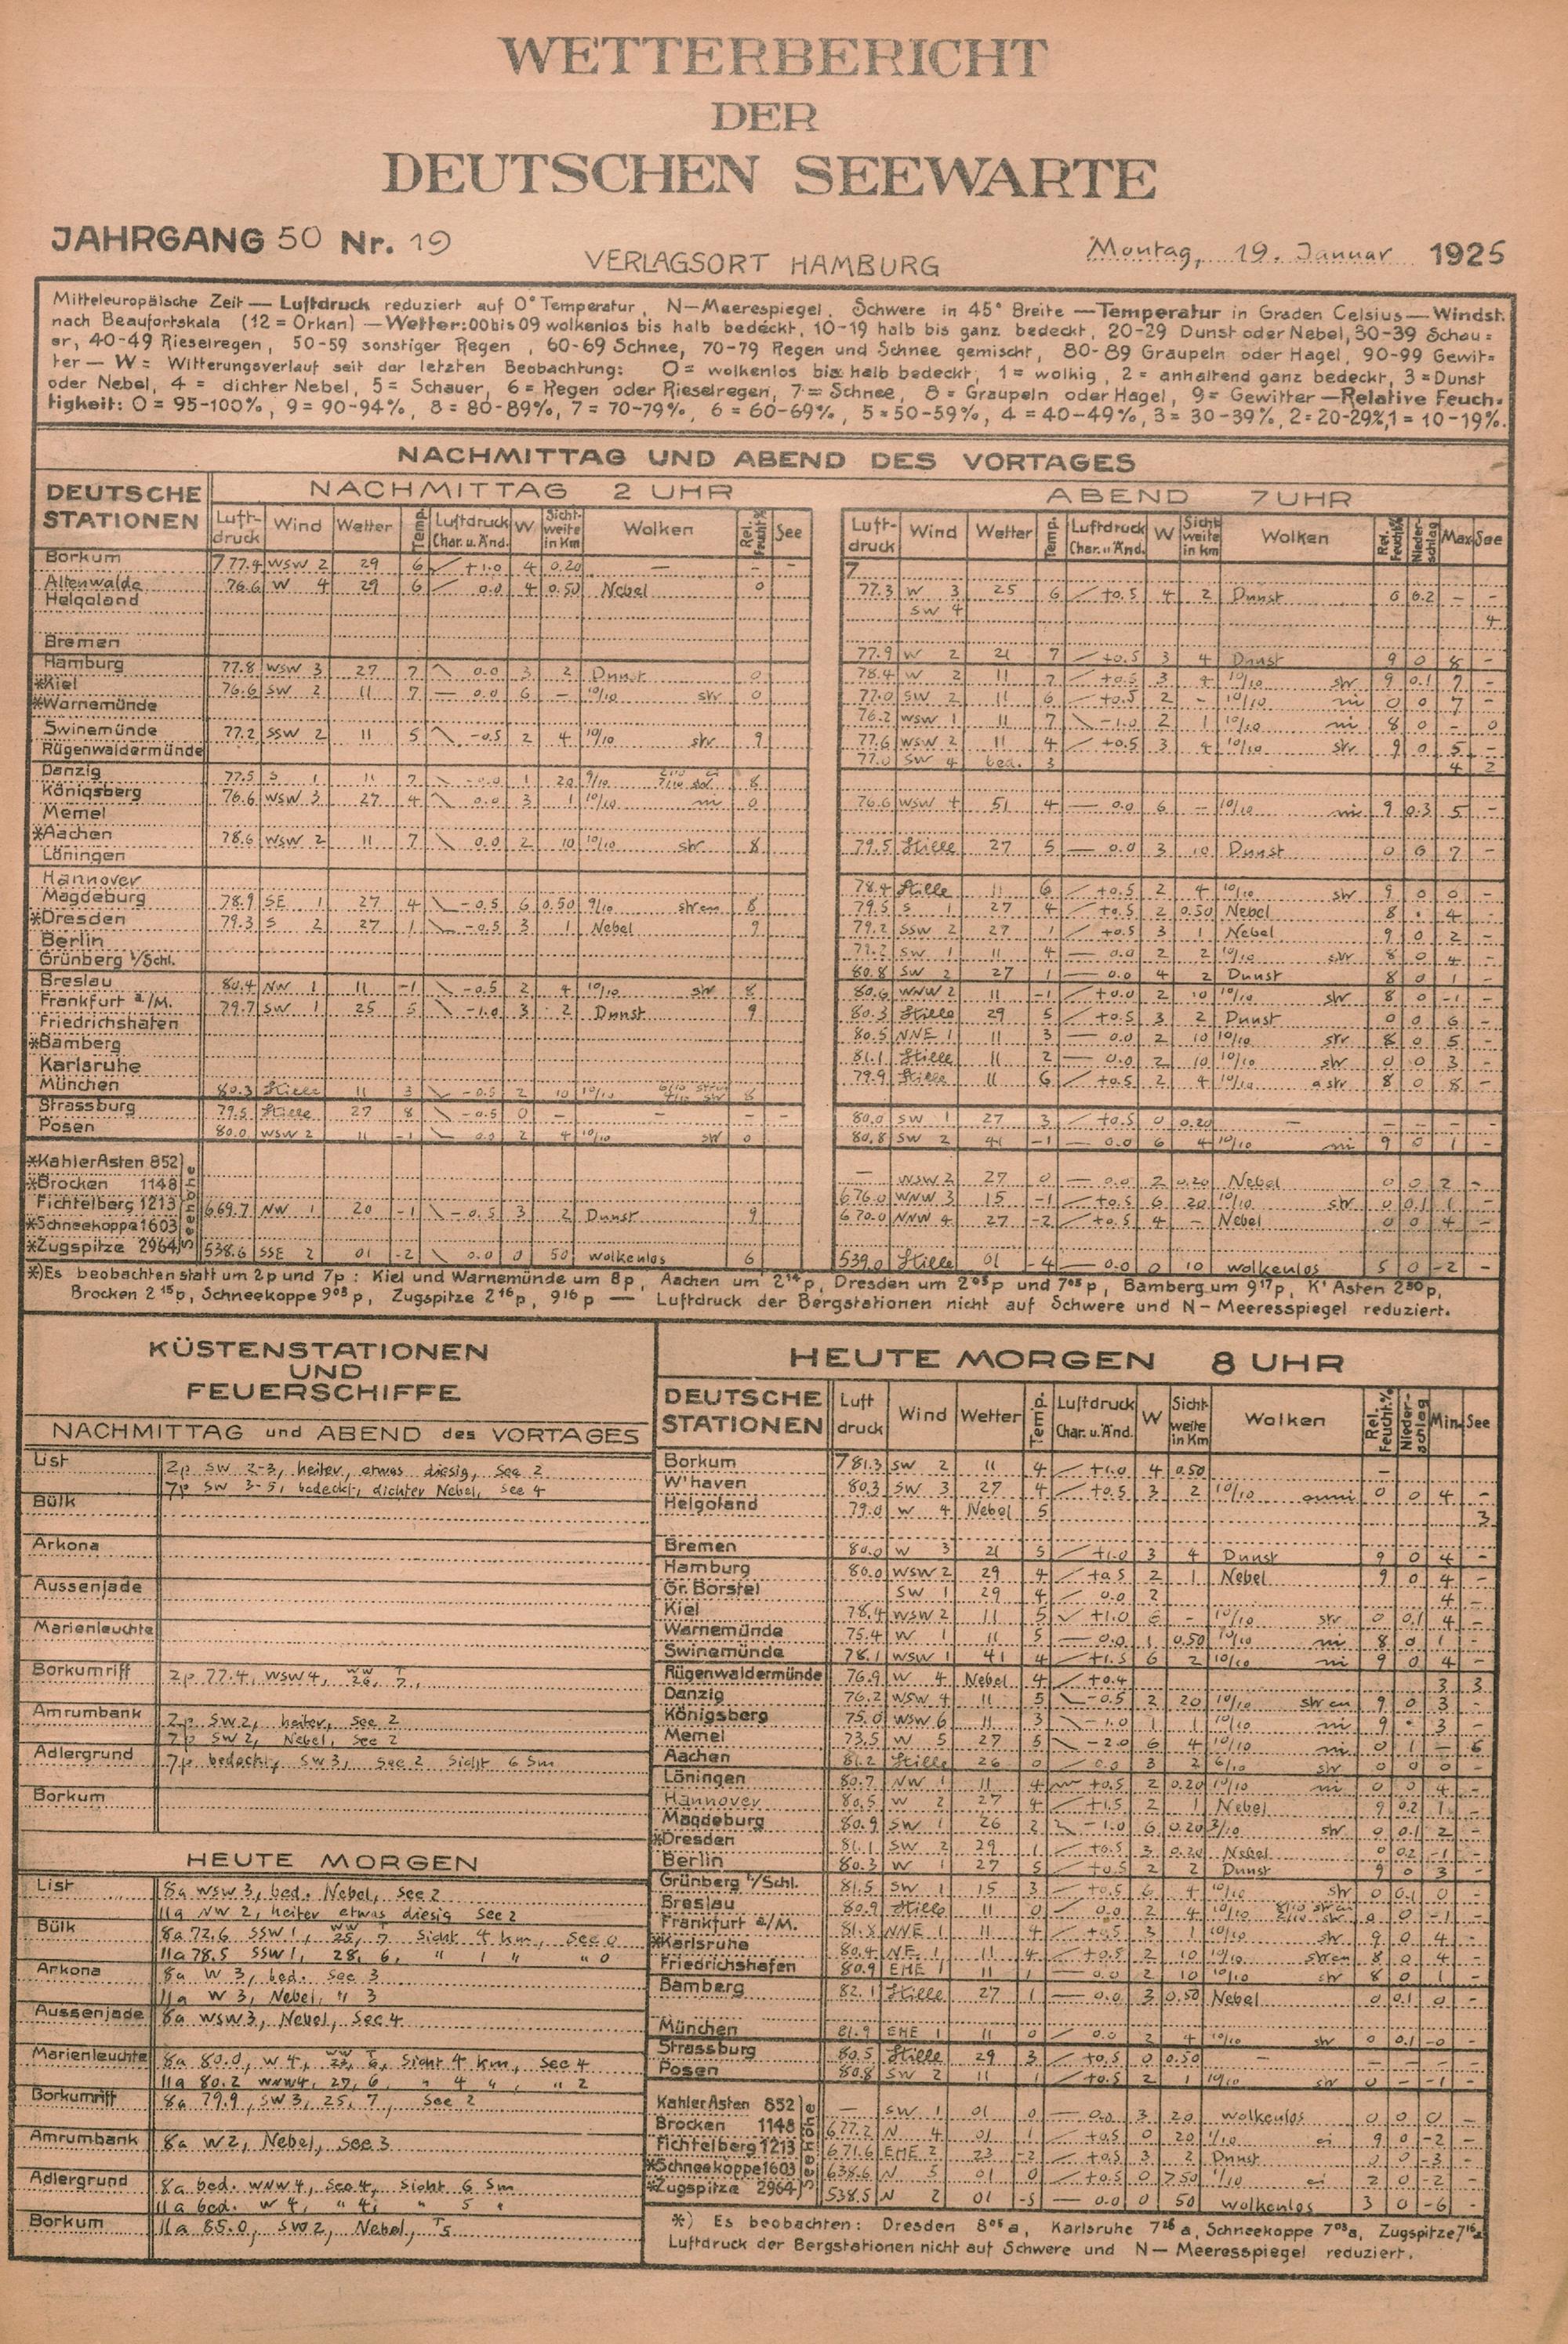 WETTERBERICHT
DER
DEUTSCHEN SEEWARTE
JAHRGANG 50 Nr. 19
VERLAGSORT HAMBURG
Montag, 19. Januar 1925
Mitteleuropäische Zeit — Luftdruck reduziert auf 0° Temperatur, N—Meerespiegel, Schwere in 45° Breite — Temperatur in Graden Celsius — Windst.
nach Beaufortskala (12 = Orkan) — Wetter: 00 bis 09 wolkenlos bis halb bedeckt, 10-19 halb bis ganz bedeckt, 20-29 Dunst oder Nebel, 30-39 Schau=
er, 40-49 Rieselregen, 50-59 sonstiger Regen, 60-69 Schnee, 70-79 Regen und Schnee gemischt, 80-89 Graupeln oder Hagel, 90-99 Gewit=
ter — W = Witterungsverlauf seit der letzten Beobachtung: 0 = wolkenlos bis halb bedeckt, 1 = wolkig, 2 = anhaltend ganz bedeckt, 3 = Dunst
oder Nebel, 4 = dichter Nebel, 5 = Schauer, 6 = Regen oder Rieselregen, 7 = Schnee, 8 = Graupeln oder Hagel, 9 = Gewitter — Relative Feuch=
tigkeit: 0 = 95-100%, 9 = 90-94%, 8 = 80-89%, 7 = 70-79%, 6 = 60-69%, 5 = 50-59%, 4 = 40-49%, 3 = 30-39%, 2 = 20-29%, 1 = 10-19%.
NACHMITTAG UND ABEND DES VORTAGES
DEUTSCHE STATIONEN
NACHMITTAG 2 UHR
Luft-druck Wind Wetter Temp. Luftdruck Char. u. Änd. W Sicht-weite in Km Wolken Rel. Feucht.% See
ABEND 7 UHR
Luft-druck Wind Wetter Temp. Luftdruck Char. u. Änd. W Sicht-weite in km Wolken Rel. Feucht.% Nieder-schlag Max See
Borkum 777.4 WSW 2 29 6 +1.0 4 0.20 — — —
Altenwalde 76.6 W 4 29 6 0.0 4 0.50 Nebel 0 77.3 W 3 25 6 +0.5 4 2 Dunst 6 0.2 — —
Helgoland SW 4 4
Bremen 77.9 W 2 21 7 +0.5 3 4 Dunst 9 0 8 —
Hamburg 77.8 WSW 3 27 7 0.0 3 2 Dunst 0 78.4 W 2 11 7 +0.5 3 4 10/10 str 9 0.1 7 —
*Kiel 76.6 SW 2 11 7 — 0.0 6 — 10/10 str 0 77.0 SW 2 11 6 +0.5 2 — 10/10 ni 0 0 7 —
*Warnemünde 76.2 WSW 1 11 7 -1.0 2 1 10/10 ni 8 0 — 0
Swinemünde 77.2 SSW 2 11 5 -0.5 2 4 10/10 str 9 77.6 WSW 2 11 4 +0.5 3 4 10/10 str 9 0 5 —
Rügenwaldermünde 77.0 SW 4 bed. 3 4 2
Danzig 77.5 S 1 11 20 9/10 8
Königsberg 76.6 WSW 3 27 4 0.0 3 1 10/10 0 76.6 WSW 4 51 4 — 0.0 6 — 10/10 ni 9 0.3 5 —
Memel
*Aachen 78.6 WSW 2 11 7 0.0 2 10 10/10 str 8 79.5 Stille 27 5 — 0.0 3 10 Dunst 0 0 7 —
Löningen
Hannover 78.4 Stille 11 6 +0.5 2 4 10/10 str 9 0 0 —
Magdeburg 78.9 SE 1 27 4 -0.5 6 0.50 9/10 8 79.5 S 1 27 4 +0.5 2 0.50 Nebel 8 . 4 —
*Dresden 79.3 S 2 27 1 -0.5 3 1 Nebel 9 79.2 SSW 2 27 1 +0.5 3 1 Nebel 9 0 2 —
Berlin SW 1 11 4 — 0.0 2 2 10/10 str 8 0 4 —
Grünberg i/Schl. 80.8 SW 2 27 1 — 0.0 4 2 Dunst 8 0 1 —
Breslau 80.4 NW 1 11 -1 -0.5 2 4 10/10 str 8 80.6 WNW 2 11 -1 +0.0 2 10 10/10 str 8 0 -1 —
Frankfurt a/M. 79.7 SW 1 25 5 -1.0 3 2 Dunst 9 80.3 Stille 29 5 +0.5 3 2 Dunst 0 0 6 —
Friedrichshafen 80.5 NNE 1 11 3 — 0.0 2 10 10/10 str 8 0 5 —
*Bamberg 81.1 Stille 11 2 — 0.0 2 10 10/10 str 0 0 3 —
Karlsruhe 79.9 Stille 11 6 +0.5 2 4 10/10 a str 8 0 8 —
München 80.3 Stille 11 3 -0.5 2 10 10/10 8
Strassburg 79.5 Stille 27 8 -0.5 0 — — — — 80.0 SW 1 27 3 +0.5 0 0.20 — — — — —
Posen 80.0 WSW 2 11 -1 0.0 2 4 10/10 str 0 80.8 SW 2 41 -1 — 0.0 6 4 10/10 ni 9 0 1 —
Seehöhe
*KahlerAsten 852 — WSW 2 27 0 — 0.0 2 0.20 Nebel 0 0 2 —
*Brocken 1148 676.0 WNW 3 15 -1 +0.5 6 20 10/10 str 0 0.1 1 —
Fichtelberg 1213 669.7 NW 1 20 -1 -0.5 3 2 Dunst 9 670.0 NNW 4 27 -2 +0.5 4 — Nebel 0 0 4 —
*Schneekoppe 1603
*Zugspitze 2964 538.6 SSE 2 01 -2 0.0 0 50 wolkenlos 6 539.0 Stille 01 -4 — 0.0 0 10 wolkenlos 5 0 -2 —
*) Es beobachten statt um 2p und 7p: Kiel und Warnemünde um 8p, Aachen um 2 14 p, Dresden um 2 05 p und 7 05 p, Bamberg um 9 17 p, K' Asten 2 30 p,
Brocken 2 15 p, Schneekoppe 9 03 p, Zugspitze 2 16 p, 9 16 p — Luftdruck der Bergstationen nicht auf Schwere und N—Meeresspiegel reduziert.
KÜSTENSTATIONEN
UND
FEUERSCHIFFE
NACHMITTAG und ABEND des VORTAGES
List 2p SW 2-3, heiter, etwas diesig, See 2
7p SW 3-5, bedeckt, dichter Nebel, See 4
Bülk
Arkona
Aussenjade
Marienleuchte
Borkumriff 2p 77.4, WSW 4, WW 26, T 7,
Amrumbank 2p SW 2, heiter, See 2
7p SW 2, Nebel, See 2
Adlergrund 7p bedeckt, SW 3, See 2 Sicht 6 Sm
Borkum
HEUTE MORGEN
List 8a WSW 3, bed. Nebel, See 2
11a NW 2, heiter etwas diesig See 2
Bülk 8a 72.6 SSW 1, WW 25, T 7 Sicht 4 km, See 0
11a 78.5 SSW 1, 28, 6, " 1 " " 0
Arkona 8a W 3, bed. See 3
11a W 3, Nebel, " 3
Aussenjade 8a WSW 3, Nebel, See 4
Marienleuchte 8a 80.0, W 4, WW T 6, Sicht 4 km, See 4
11a 80.2 WNW 4, 27, 6, " 4 " , " 2
Borkumriff 8a 79.9, SW 3, 25, 7, See 2
Amrumbank 8a W 2, Nebel, See 3
Adlergrund 8a bed. WNW 4, See 4, Sicht 6 Sm
11a bed. W 4, " 4, " 5 "
Borkum 11a 85.0, SW 2, Nebel, T 5
HEUTE MORGEN 8 UHR
DEUTSCHE STATIONEN Luft druck Wind Wetter Temp. Luftdruck Char. u. Änd. W Sicht-weite in Km Wolken Rel. Feucht.% Nieder-schlag Min. See
Borkum 781.3 SW 2 11 4 +1.0 4 0.50 —
W'haven 80.3 SW 3 27 4 +0.5 3 2 10/10 0 0 4 —
Helgoland 79.0 W 4 Nebel 5 3
Bremen 80.0 W 3 21 5 +1.0 3 4 Dunst 9 0 4 —
Hamburg 80.0 WSW 2 29 4 +0.5 2 1 Nebel 9 0 4 —
Gr. Borstel SW 1 29 4 0.0 2 4 —
Kiel 78.4 WSW 2 11 5 +1.0 6 — 10/10 str 0 0.1 4 —
Warnemünde 75.4 W 1 11 5 — 0.0 1 0.50 10/10 ni 8 0 1 —
Swinemünde 78.1 WSW 1 41 4 +1.5 6 2 10/10 ni 9 0 4 —
Rügenwaldermünde 76.9 W 4 Nebel 4 +0.4 3 3
Danzig 76.2 WSW 4 11 5 -0.5 2 20 10/10 str cu 9 0 3 —
Königsberg 75.0 WSW 6 11 3 -1.0 1 1 10/10 ni 9 . 3 —
Memel 73.5 W 5 27 5 -2.0 6 4 10/10 ni 0 1 — 6
Aachen 81.2 Stille 26 0 0.0 3 2 6/10 str 0 0 0 —
Löningen 80.7 NW 1 11 4 +0.5 2 0.20 10/10 ni 0 0 4 —
Hannover 80.5 W 2 27 4 +1.5 2 1 Nebel 9 0.2 1 —
Magdeburg 80.9 SW 1 26 2 -1.0 6 0.20 3/10 str 0 0.1 2 —
*Dresden 81.1 SW 2 29 1 +0.5 3 0.20 Nebel 0 0.2 -1 —
Berlin 80.3 W 1 27 5 +0.5 2 2 Dunst 9 0 3 —
Grünberg i/Schl. 81.5 SW 1 15 3 +0.5 6 4 10/10 str 0 0.1 0 —
Breslau 80.9 Stille 11 0 0.0 2 4 10/10 0 0 -1 —
Frankfurt a/M. 81.8 NNE 1 11 4 +0.5 3 1 10/10 str 9 0 4 —
*Karlsruhe 80.4 NE 1 11 4 +0.5 2 10 10/10 str cu 8 0 4 —
Friedrichshafen 80.9 ENE 1 11 1 — 0.0 2 10 10/10 str 8 0 1 —
Bamberg 82.1 Stille 27 1 — 0.0 3 0.50 Nebel 0 0.1 0 —
München 81.9 ENE 1 11 0 0.0 2 4 10/10 str 0 0.1 -0 —
Strassburg 80.5 Stille 29 3 +0.5 0 0.50 — — — — —
Posen 80.8 SW 2 11 1 +0.5 2 1 10/10 str 0 — -1 —
Seehöhe
KahlerAsten 852 — SW 1 01 0 — 0.0 3 20 wolkenlos 0 0 0 —
Brocken 1148 677.2 N 4 01 1 +0.5 0 20 1/10 ci 9 0 -2 —
Fichtelberg 1213 671.6 ENE 2 23 -2 +0.5 3 2 Dunst 0 0 -3 —
*Schneekoppe 1603 638.6 N 5 01 0 +0.5 0 >50 1/10 ci 2 0 -2 —
*Zugspitze 2964 538.5 N 2 01 -5 — 0.0 0 50 wolkenlos 3 0 -6 —
*) Es beobachten: Dresden 8 05 a, Karlsruhe 7 26 a, Schneekoppe 7 03 a, Zugspitze 7 16 a
Luftdruck der Bergstationen nicht auf Schwere und N—Meeresspiegel reduziert.